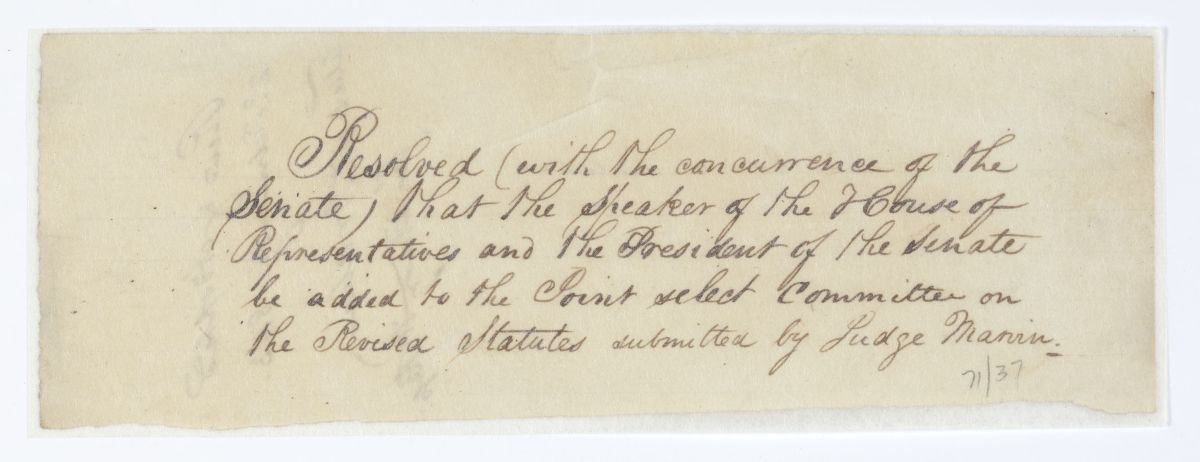 Resolved (with the concurrence of the
Senate) that the Speaker of the House of
Representatives and the President of the Senate
be added to the Joint select Committee on
the Revised Statutes submitted by Judge Marvin.
71/37